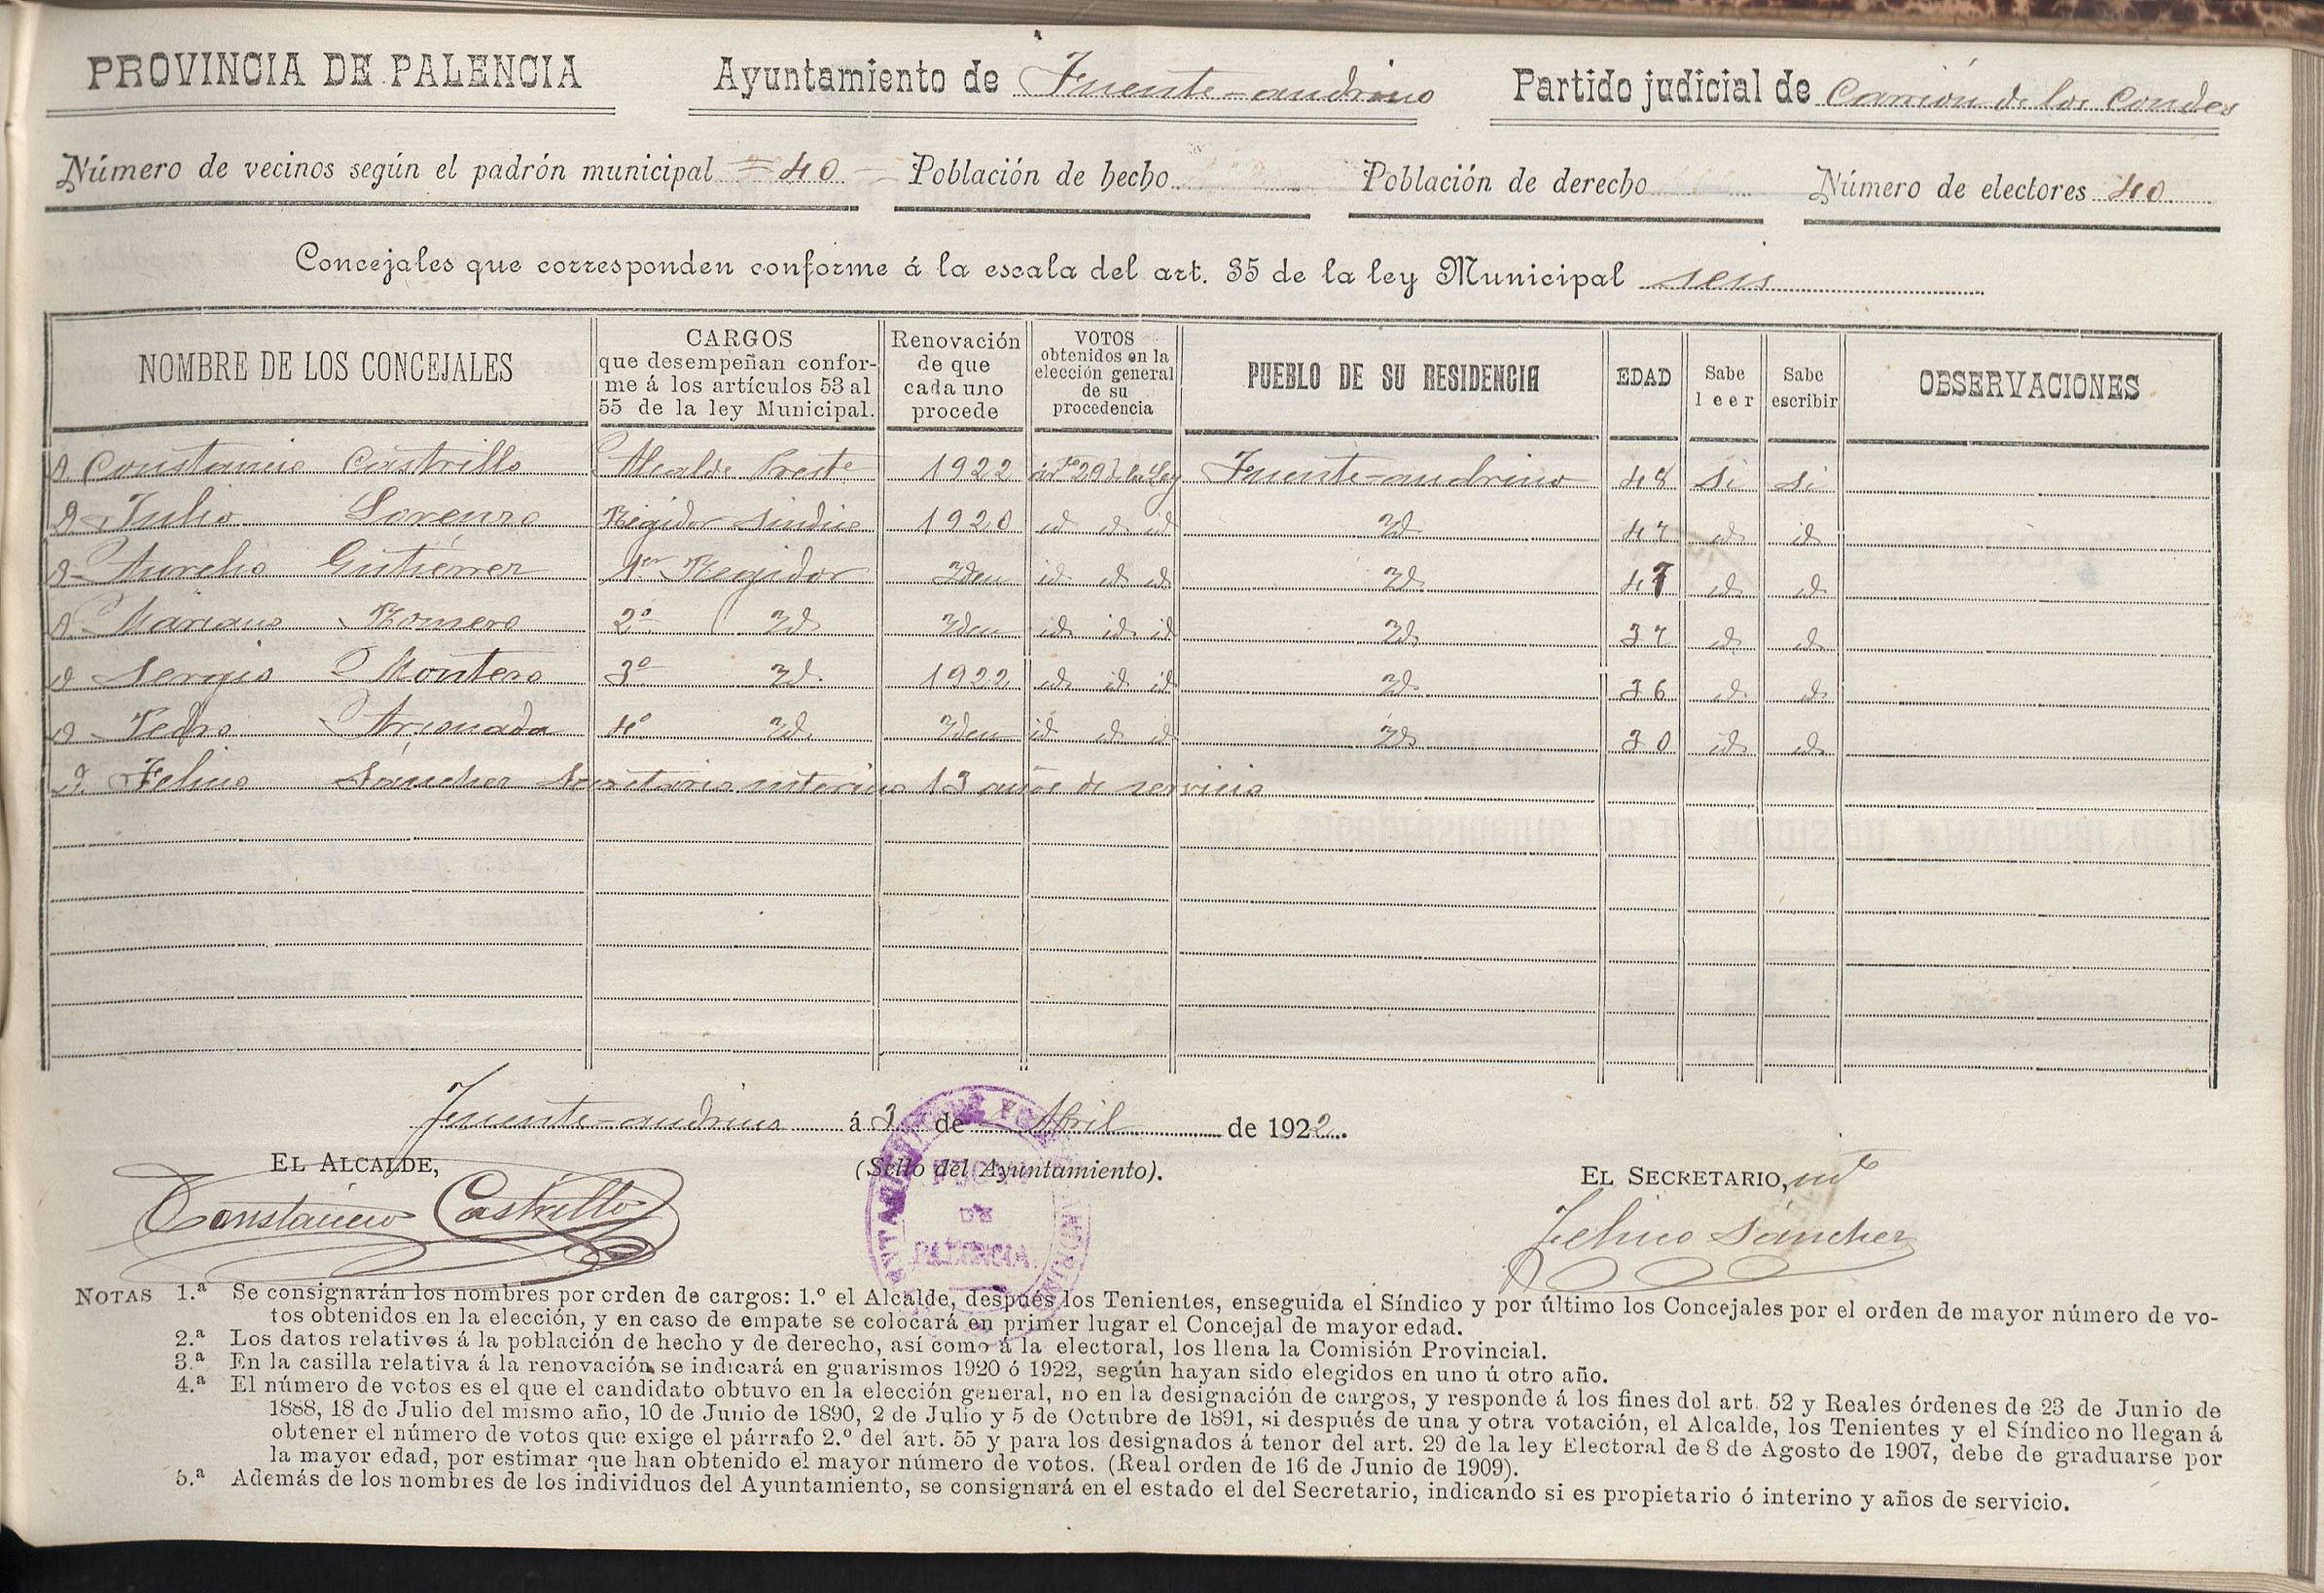 PROVINCIA DE PALENCIA Ayuntamiento de Fuente-andrino Partido judicial de Carrión de los Condes
Número de vecinos según el padrón municipal = 40 Población de hecho Población de derecho Número de electores 40
Concejales que corresponden conforme á la escala del art. 35 de la ley Municipal seis
NOMBRE DE LOS CONCEJALES
CARGOS
que desempeñan confor-
me á los artículos 53 al
55 de la ley Municipal.
Renovación
de que
cada uno
procede
VOTOS
obtenidos en la
elección general
de su
procedencia
PUEBLO DE SU RESIDENCIA
EDAD
Sabe
leer
Sabe
escribir
OBSERVACIONES
D. Constancio Castrillo Alcalde Preste 1922 arto 29 de la Ley Fuente-andrino 48 si si
D. Julio Lorenzo Regidor sindico 1920 id id id Id. 47 id id
D. Aurelio Gutiérrez 1er Regidor Idem id id id Id. 47 id id
D. Mariano Romero 2º Id. Idem id id id Id. 37 id id
D. Sergio Montero 3º Id. 1922 id id id Id. 36 id id
D. Pedro Arconada 4º Id. Idem id id id Id. 30 id id
D. Felino Sanchez Secretario interino 13 años de servicio
Fuente-andrino á 3 de Abril de 1922.
EL ALCALDE,
(Sello del Ayuntamiento).
EL SECRETARIO, intº
Constancio Castrillo
Felino Sanchez
DE
PALENCIA
NOTAS 1.ª Se consignarán los nombres por orden de cargos: 1.º el Alcalde, después los Tenientes, enseguida el Síndico y por último los Concejales por el orden de mayor número de vo-
tos obtenidos en la elección, y en caso de empate se colocará en primer lugar el Concejal de mayor edad.
2.ª Los datos relativos á la población de hecho y de derecho, así como á la electoral, los llena la Comisión Provincial.
3.ª En la casilla relativa á la renovación se indicará en guarismos 1920 ó 1922, según hayan sido elegidos en uno ú otro año.
4.ª El número de votos es el que el candidato obtuvo en la elección general, no en la designación de cargos, y responde á los fines del art. 52 y Reales órdenes de 23 de Junio de
1888, 18 de Julio del mismo año, 10 de Junio de 1890, 2 de Julio y 5 de Octubre de 1891, si después de una y otra votación, el Alcalde, los Tenientes y el Síndico no llegan á
obtener el número de votos que exige el párrafo 2.º del art. 55 y para los designados á tenor del art. 29 de la ley Electoral de 8 de Agosto de 1907, debe de graduarse por
la mayor edad, por estimar que han obtenido el mayor número de votos. (Real orden de 16 de Junio de 1909).
5.ª Además de los nombres de los individuos del Ayuntamiento, se consignará en el estado el del Secretario, indicando si es propietario ó interino y años de servicio.